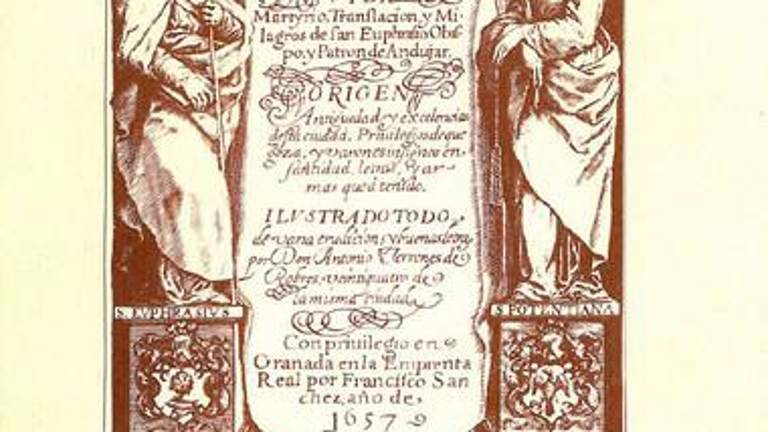 Martyrio, Translacion, y Mi-
lagros de san Euphrasio Obis-
po, y Patron de Andujar.
ORIGEN
Antiguedad, y excelencias
desta ciudad, Privilegios de que
goza, y varones insignes en
santidad, letras, y ar-
mas que à tenido.
ILUSTRADO TODO,
de varia erudicion, y buenas letras
por Don Antonio Terrones de
Robres, veintiquatro de
la misma ciudad
S. EVPHRASIVS
S. POTENTIANA
Con priuilegio en
Granada en la Emprenta
Real por Francisco San
chez, año de
1657